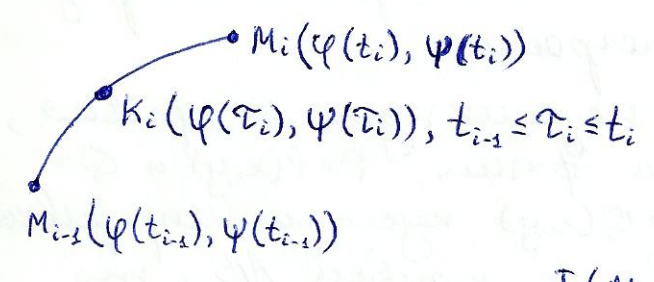 Mᵢ(φ(tᵢ), ψ(tᵢ))
Kᵢ(φ(τᵢ), ψ(τᵢ)), tᵢ₋₁ ≤ τᵢ ≤ tᵢ
Mᵢ₋₁(φ(tᵢ₋₁), ψ(tᵢ₋₁))